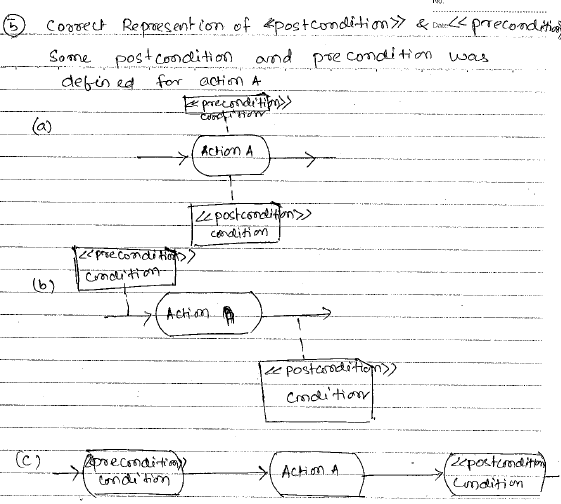 No.
⑤ Correct Represention of <<postcondition>> & Date <<precondition>>
Some postcondition and precondition was
defined for action A
<<precondition>>
condition
(a)
Action A
<<postcondition>>
condition
<<precondition>>
Condition
(b)
Action A
<<postcondition>>
Condition
(c)
<<precondition>>
condition
Action A
<<postcondition>>
Condition